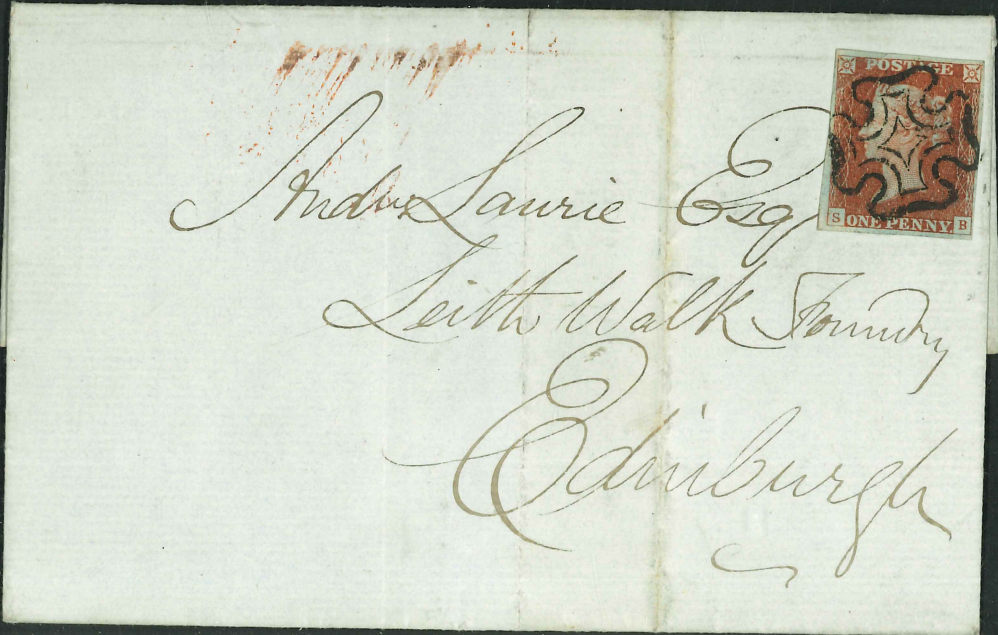 POSTAGE
S ONE PENNY B
Andw Laurie Esq
Leith Walk Foundry
Edinburgh